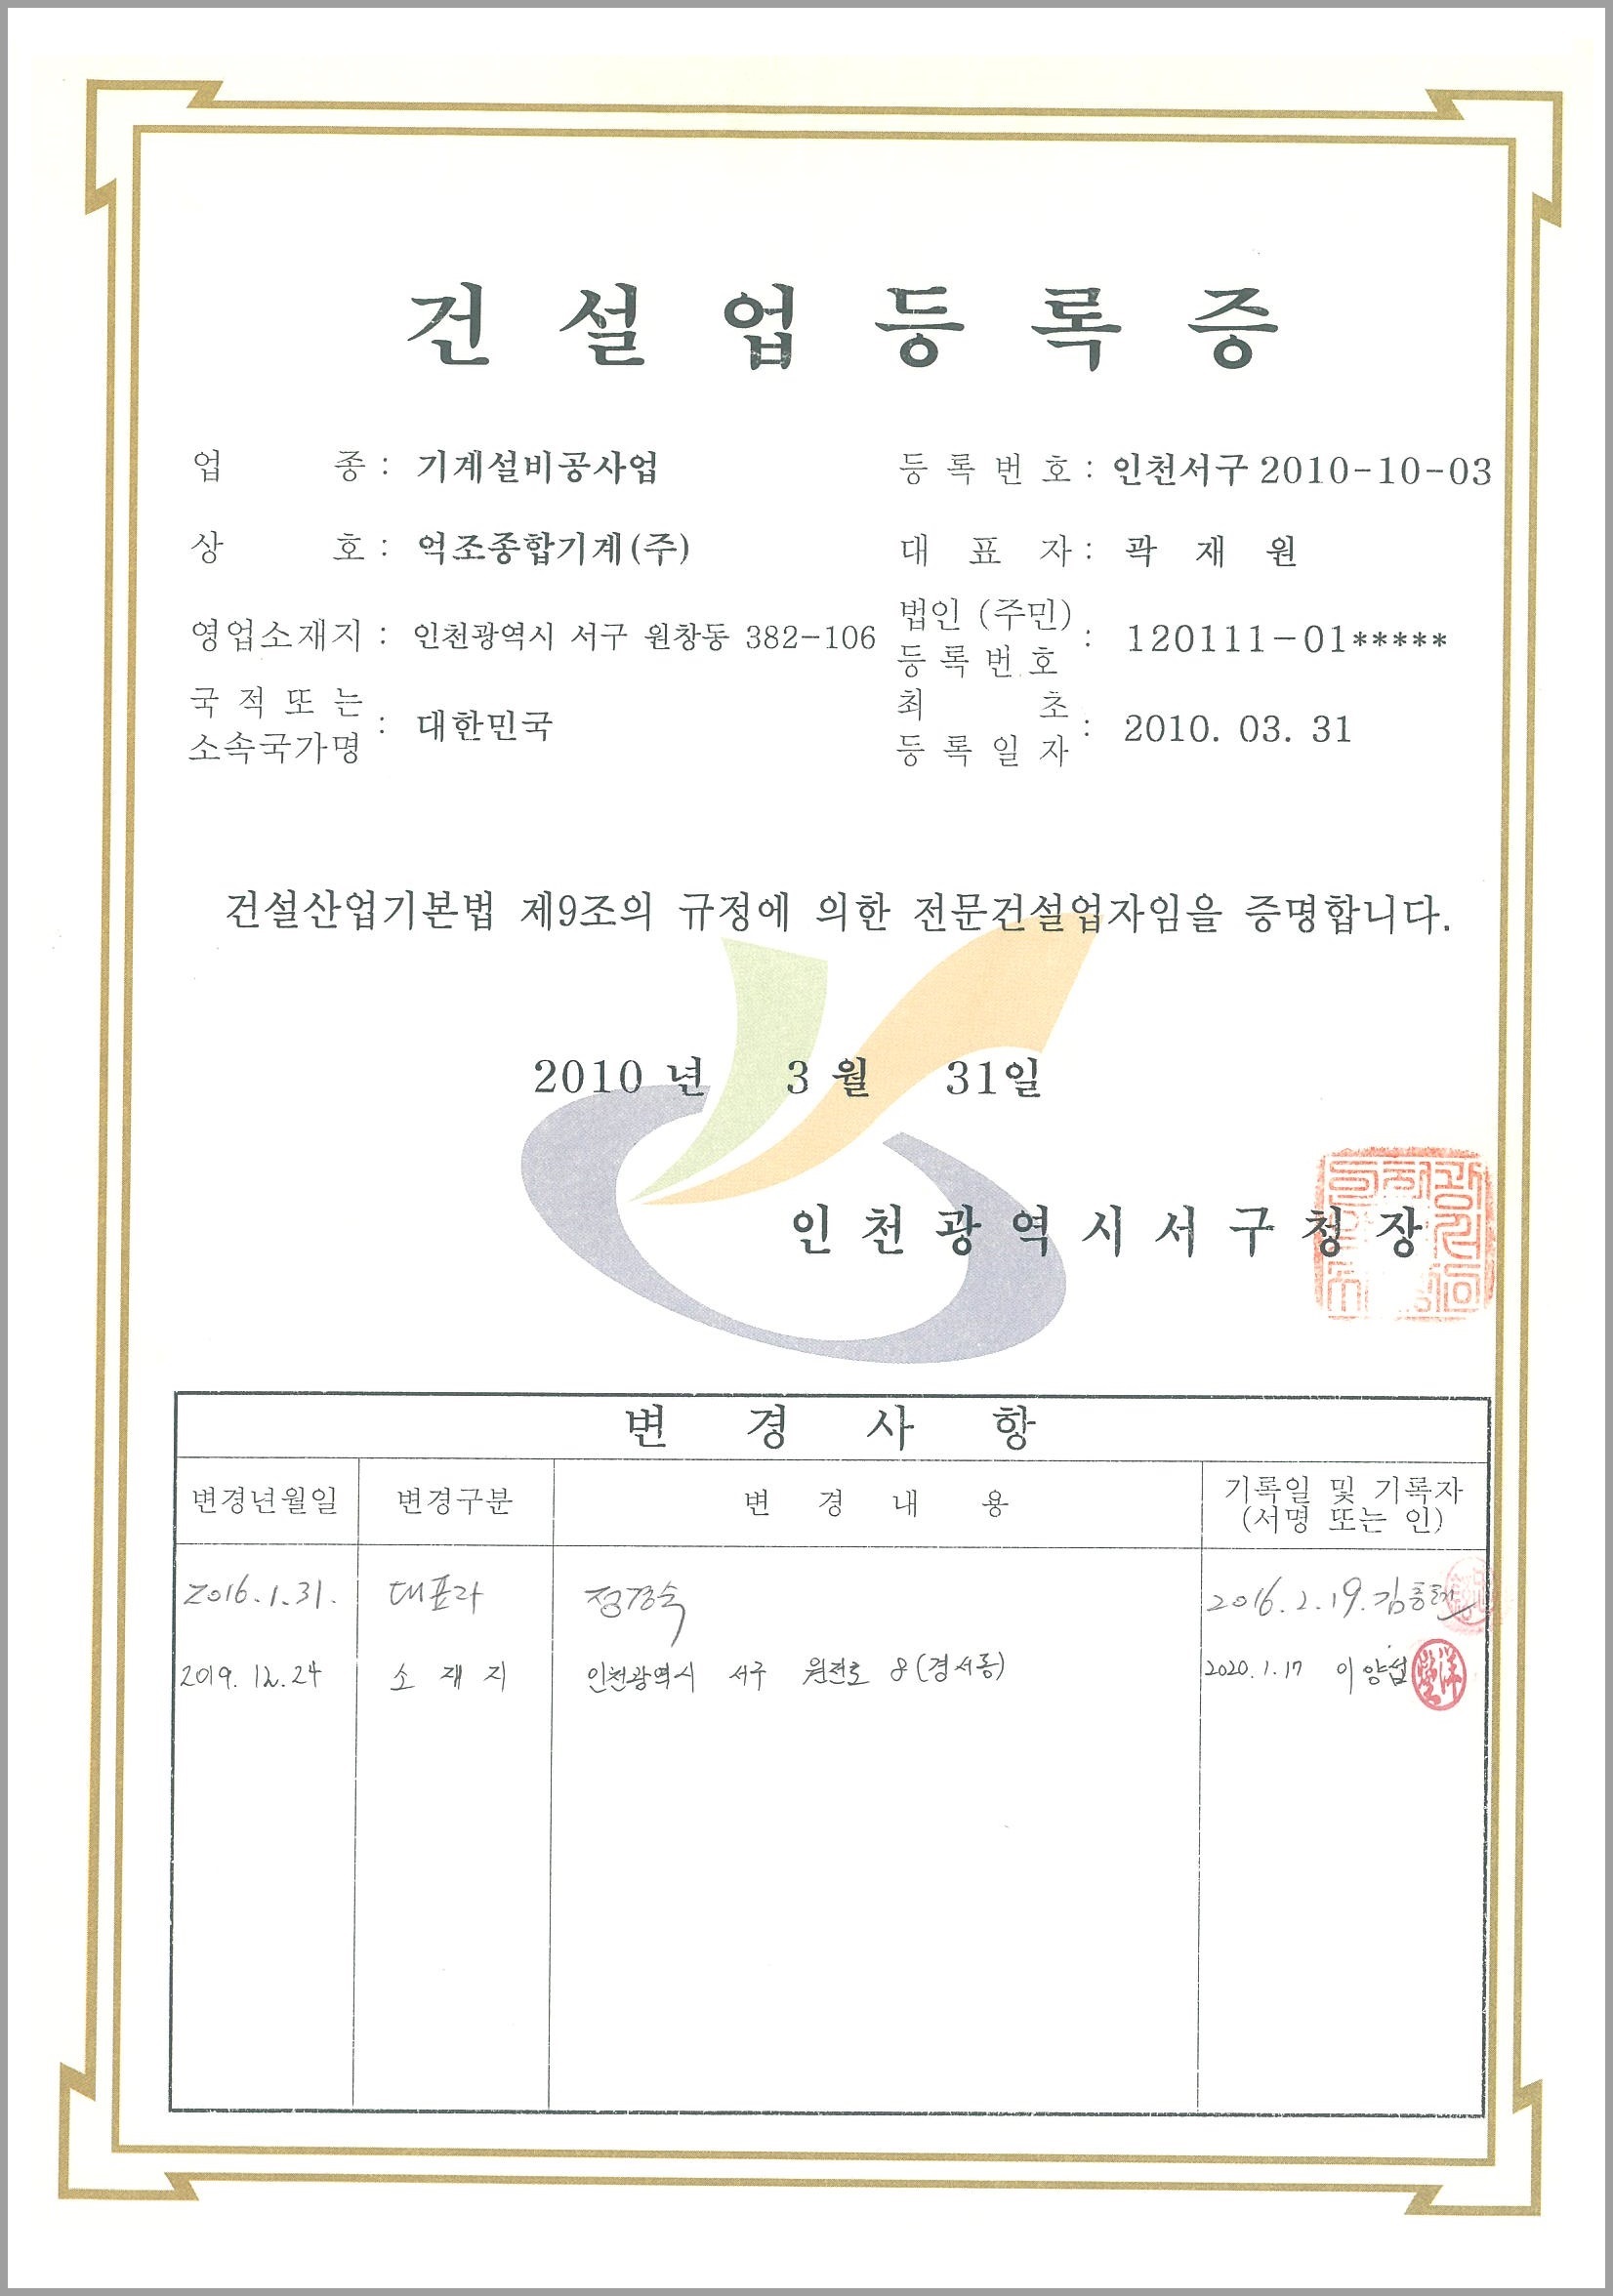 건설업등록증
업 종 : 기계설비공사업
등록번호 : 인천서구 2010-10-03
상 호 : 억조종합기계(주)
대 표 자 : 곽 재 원
영업소재지 : 인천광역시 서구 원창동 382-106
법인 (주민) 등록번호 : 120111-01*****
국적 또는 소속국가명 : 대한민국
최초 등록일자 : 2010. 03. 31
건설산업기본법 제9조의 규정에 의한 전문건설업자임을 증명합니다.
2010 년 3 월 31일
인천광역시서구청장
변 경 사 항
변경년월일 변경구분 변 경 내 용 기록일 및 기록자 (서명 또는 인)
2016.1.31. 대표자 정경숙 2016.2.19. 김
2019.12.24 소재지 인천광역시 서구 원전로 8(경서동) 2020.1.17 이양섭